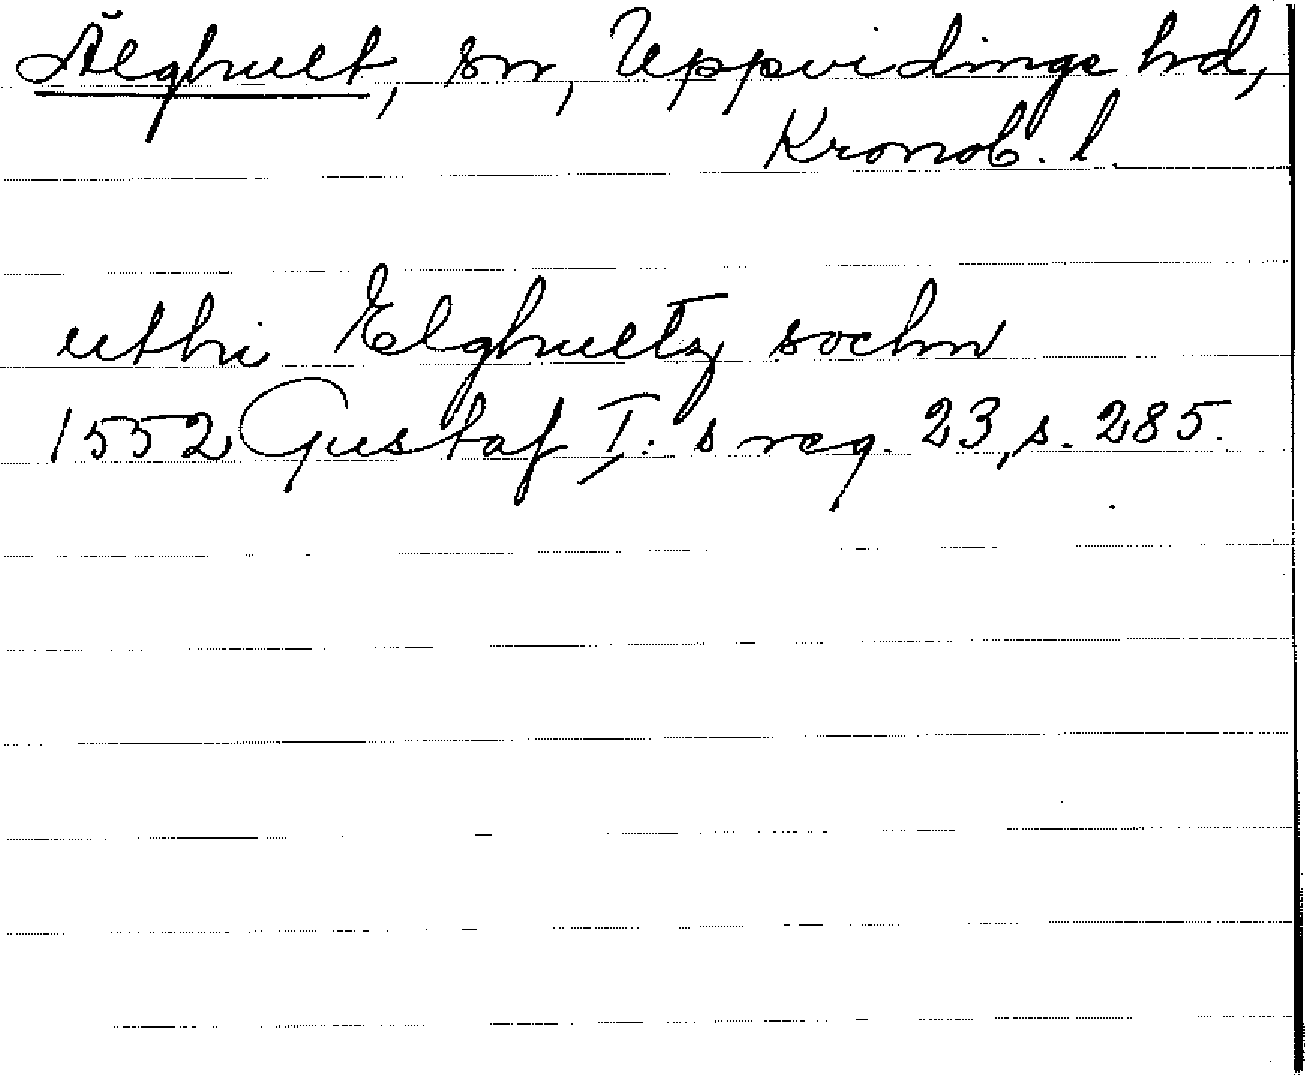 Älghult, sn, Uppvidinge hd,
Kronob. l.
uthi Elghultz sochn
1552 Gustaf I: s reg. 23, s. 285.